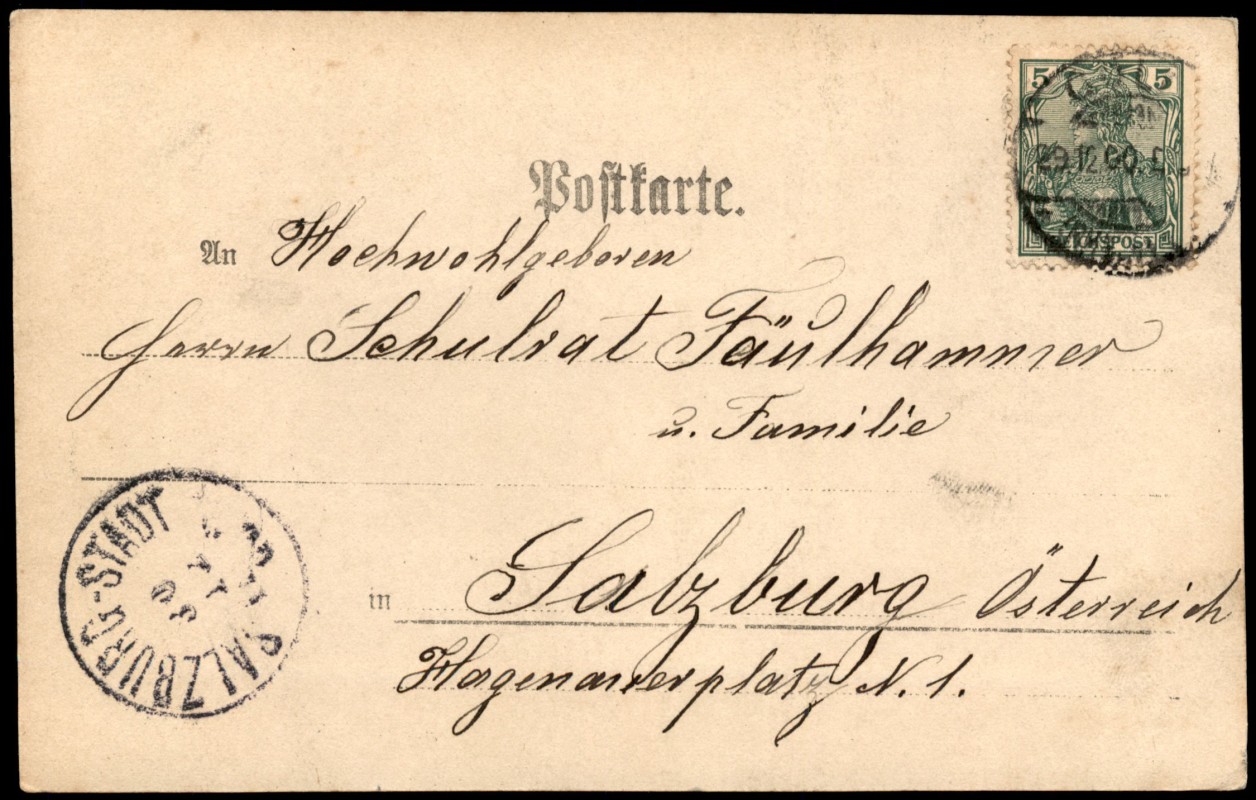 5 5
29.12.00.
REICHSPOST
Postkarte.
An Hochwohlgeboren
Herrn Schulrat Fäulhammer
u. Familie
SALZBURG-STADT
in Salzburg Österreich
Hagenauerplatz N. 1.